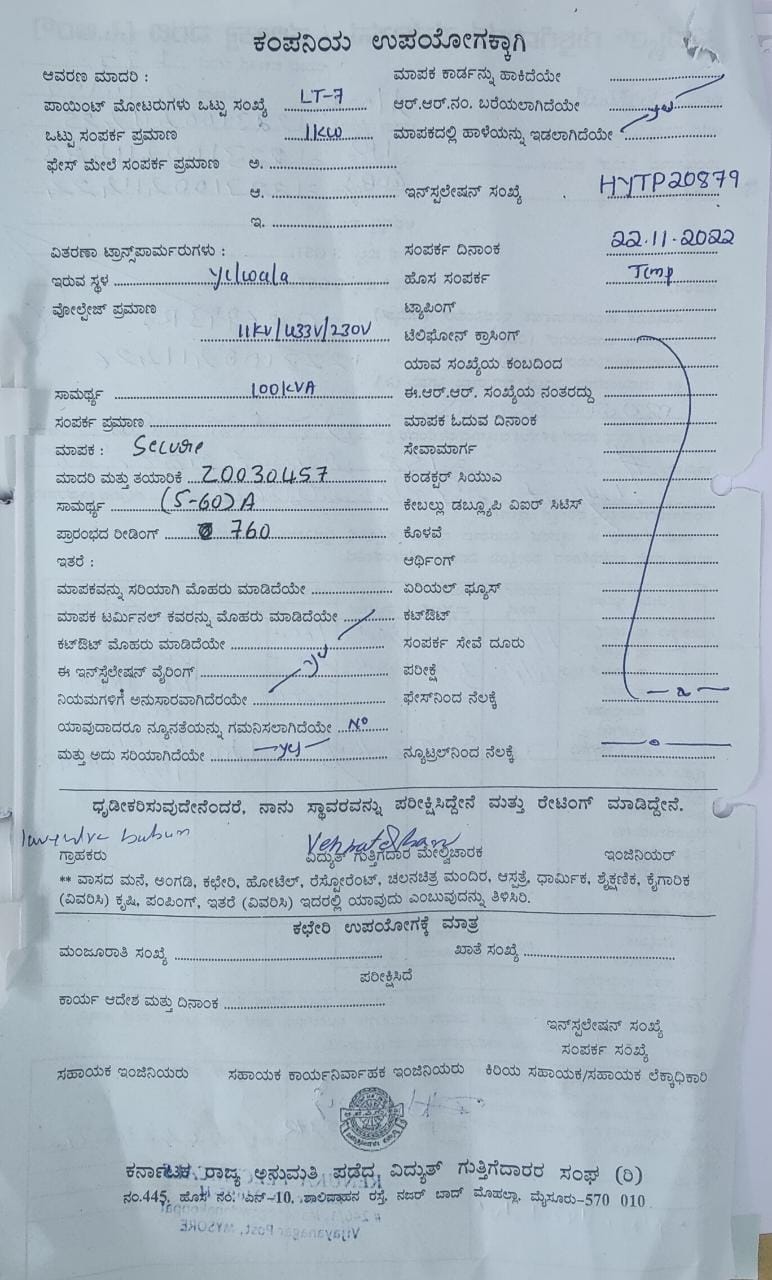 ಕಂಪನಿಯ ಉಪಯೋಗಕ್ಕಾಗಿ
ಆವರಣ ಮಾದರಿ : ಮಾಪಕ ಕಾರ್ಡನ್ನು ಹಾಕಿದೆಯೇ
ಪಾಯಿಂಟ್ ಮೋಟರುಗಳು ಒಟ್ಟು ಸಂಖ್ಯೆ LT-7 ಆರ್.ಆರ್.ನಂ. ಬರೆಯಲಾಗಿದೆಯೇ yes
ಒಟ್ಟು ಸಂಪರ್ಕ ಪ್ರಮಾಣ 1KW ಮಾಪಕದಲ್ಲಿ ಹಾಳೆಯನ್ನು ಇಡಲಾಗಿದೆಯೇ
ಫೇಸ್ ಮೇಲೆ ಸಂಪರ್ಕ ಪ್ರಮಾಣ ಅ.
ಆ. ಇನ್‌ಸ್ಟಲೇಷನ್ ಸಂಖ್ಯೆ HYTP20879
ಇ.
ವಿತರಣಾ ಟ್ರಾನ್ಸ್‌ಫಾರ್ಮರುಗಳು : ಸಂಪರ್ಕ ದಿನಾಂಕ 22.11.2022
ಇರುವ ಸ್ಥಳ Yelwala ಹೊಸ ಸಂಪರ್ಕ Temp
ವೋಲ್ಟೇಜ್ ಪ್ರಮಾಣ ಟ್ಯಾಪಿಂಗ್
11KV/433V/230V ಟೆಲಿಫೋನ್ ಕ್ರಾಸಿಂಗ್
ಯಾವ ಸಂಖ್ಯೆಯ ಕಂಬದಿಂದ
ಸಾಮರ್ಥ್ಯ 100KVA ಈ.ಆರ್.ಆರ್. ಸಂಖ್ಯೆಯ ನಂತರದ್ದು
ಸಂಪರ್ಕ ಪ್ರಮಾಣ ಮಾಪಕ ಓದುವ ದಿನಾಂಕ
ಮಾಪಕ : Secure ಸೇವಾಮಾರ್ಗ
ಮಾದರಿ ಮತ್ತು ತಯಾರಿಕೆ 20030457 ಕಂಡಕ್ಟರ್ ಸಿಯುಎ
ಸಾಮರ್ಥ್ಯ (5-60)A ಕೇಬಲ್ಲು ಡಬ್ಲ್ಯೂಪಿ ವಿಐರ್ ಸಿಟಿಸ್
ಪ್ರಾರಂಭದ ರೀಡಿಂಗ್ 760 ಕೊಳವೆ
ಇತರೆ : ಆರ್ಥಿಂಗ್
ಮಾಪಕವನ್ನು ಸರಿಯಾಗಿ ಮೊಹರು ಮಾಡಿದೆಯೇ ಏರಿಯಲ್ ಫ್ಯೂಸ್
ಮಾಪಕ ಟರ್ಮಿನಲ್ ಕವರನ್ನು ಮೊಹರು ಮಾಡಿದೆಯೇ ಕಟ್‌ಔಟ್
ಕಟ್‌ಔಟ್ ಮೊಹರು ಮಾಡಿದೆಯೇ ಸಂಪರ್ಕ ಸೇವೆ ದೂರು
ಈ ಇನ್‌ಸ್ಟೆಲೇಷನ್ ವೈರಿಂಗ್ yes ಪರೀಕ್ಷೆ
ನಿಯಮಗಳಿಗೆ ಅನುಸಾರವಾಗಿದೆರಯೇ ಫೇಸ್‌ನಿಂದ ನೆಲಕ್ಕೆ
ಯಾವುದಾದರೂ ನ್ಯೂನತೆಯನ್ನು ಗಮನಿಸಲಾಗಿದೆಯೇ No
ಮತ್ತು ಅದು ಸರಿಯಾಗಿದೆಯೇ yes ನ್ಯೂಟ್ರಲ್‌ನಿಂದ ನೆಲಕ್ಕೆ
ಧೃಡೀಕರಿಸುವುದೇನೆಂದರೆ, ನಾನು ಸ್ಥಾವರವನ್ನು ಪರೀಕ್ಷಿಸಿದ್ದೇನೆ ಮತ್ತು ರೇಟಿಂಗ್ ಮಾಡಿದ್ದೇನೆ.
ಗ್ರಾಹಕರು ವಿದ್ಯುತ್ ಗುತ್ತಿಗೆದಾರ ಮೇಲ್ವಿಚಾರಕ ಇಂಜಿನಿಯರ್
** ವಾಸದ ಮನೆ, ಅಂಗಡಿ, ಕಛೇರಿ, ಹೋಟೆಲ್, ರೆಸ್ಟೋರೆಂಟ್, ಚಲನಚಿತ್ರ ಮಂದಿರ, ಆಸ್ಪತ್ರೆ, ಧಾರ್ಮಿಕ, ಶೈಕ್ಷಣಿಕ, ಕೈಗಾರಿಕ
(ವಿವರಿಸಿ) ಕೃಷಿ, ಪಂಪಿಂಗ್, ಇತರೆ (ವಿವರಿಸಿ) ಇದರಲ್ಲಿ ಯಾವುದು ಎಂಬುವುದನ್ನು ತಿಳಿಸಿರಿ.
ಕಛೇರಿ ಉಪಯೋಗಕ್ಕೆ ಮಾತ್ರ
ಮಂಜೂರಾತಿ ಸಂಖ್ಯೆ ಖಾತೆ ಸಂಖ್ಯೆ
ಪರೀಕ್ಷಿಸಿದೆ
ಕಾರ್ಯ ಆದೇಶ ಮತ್ತು ದಿನಾಂಕ
ಇನ್‌ಸ್ಟಲೇಷನ್ ಸಂಖ್ಯೆ
ಸಂಪರ್ಕ ಸಂಖ್ಯೆ
ಸಹಾಯಕ ಇಂಜಿನಿಯರು ಸಹಾಯಕ ಕಾರ್ಯನಿರ್ವಾಹಕ ಇಂಜಿನಿಯರು ಕಿರಿಯ ಸಹಾಯಕ/ಸಹಾಯಕ ಲೆಕ್ಕಾಧಿಕಾರಿ
ಕರ್ನಾಟಕ ರಾಜ್ಯ ಅನುಮತಿ ಪಡೆದ ವಿದ್ಯುತ್ ಗುತ್ತಿಗೆದಾರರ ಸಂಘ (ರಿ)
ನಂ.445, ಹೊಸ ನಂ. ಎನ್-10, ಶಾಲಿವಾಹನ ರಸ್ತೆ, ನಜರ್ ಬಾದ್ ಮೊಹಲ್ಲಾ, ಮೈಸೂರು-570 010